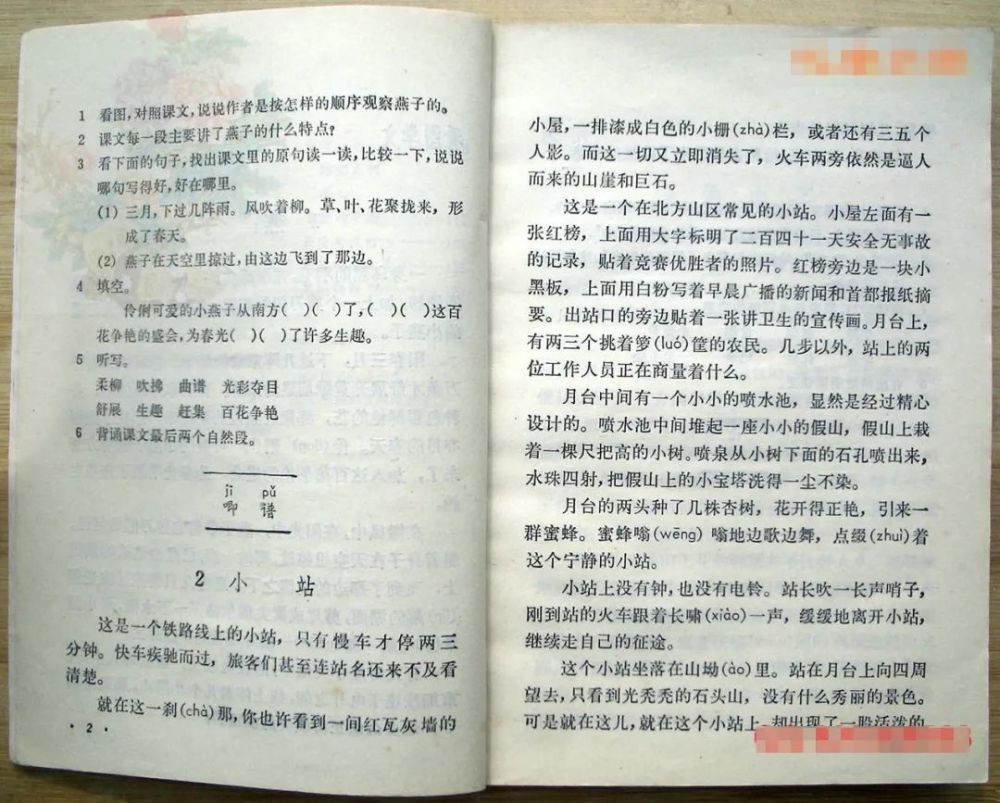 1 看图，对照课文，说说作者是按怎样的顺序观察燕子的。
2 课文每一段主要讲了燕子的什么特点？
3 看下面的句子，找出课文里的原句读一读，比较一下，说说
哪句写得好，好在哪里。
(1) 三月，下过几阵雨。风吹着柳。草、叶、花聚拢来，形
成了春天。
(2) 燕子在天空里掠过，由这边飞到了那边。
4 填空。
伶俐可爱的小燕子从南方( )( )了，( )( )这百
花争艳的盛会，为春光( )( )了许多生趣。
5 听写。
柔柳 吹拂 曲谱 光彩夺目
舒展 生趣 赶集 百花争艳
6 背诵课文最后两个自然段。
jī pǔ
唧 谱
2 小 站
这是一个铁路线上的小站，只有慢车才停两三
分钟。快车疾驰而过，旅客们甚至连站名还来不及看
清楚。
就在这一刹(chà)那，你也许看到一间红瓦灰墙的
· 2 ·
小屋，一排漆成白色的小栅(zhà)栏，或者还有三五个
人影。而这一切又立即消失了，火车两旁依然是逼人
而来的山崖和巨石。
这是一个在北方山区常见的小站。小屋左面有一
张红榜，上面用大字标明了二百四十一天安全无事故
的记录，贴着竞赛优胜者的照片。红榜旁边是一块小
黑板，上面用白粉写着早晨广播的新闻和首都报纸摘
要。出站口的旁边贴着一张讲卫生的宣传画。月台上，
有两三个挑着箩(luó)筐的农民。几步以外，站上的两
位工作人员正在商量着什么。
月台中间有一个小小的喷水池，显然是经过精心
设计的。喷水池中间堆起一座小小的假山，假山上栽
着一棵尺把高的小树。喷泉从小树下面的石孔喷出来，
水珠四射，把假山上的小宝塔洗得一尘不染。
月台的两头种了几株杏树，花开得正艳，引来一
群蜜蜂。蜜蜂嗡(wēng)嗡地边歌边舞，点缀(zhuì)着
这个宁静的小站。
小站上没有钟，也没有电铃。站长吹一长声哨子，
刚到站的火车跟着长啸(xiào)一声，缓缓地离开小站，
继续走自己的征途。
这个小站坐落在山坳(ào)里。站在月台上向四周
望去，只看到光秃秃的石头山，没有什么秀丽的景色。
可是就在这儿，就在这个小站上，却出现了一股活泼的